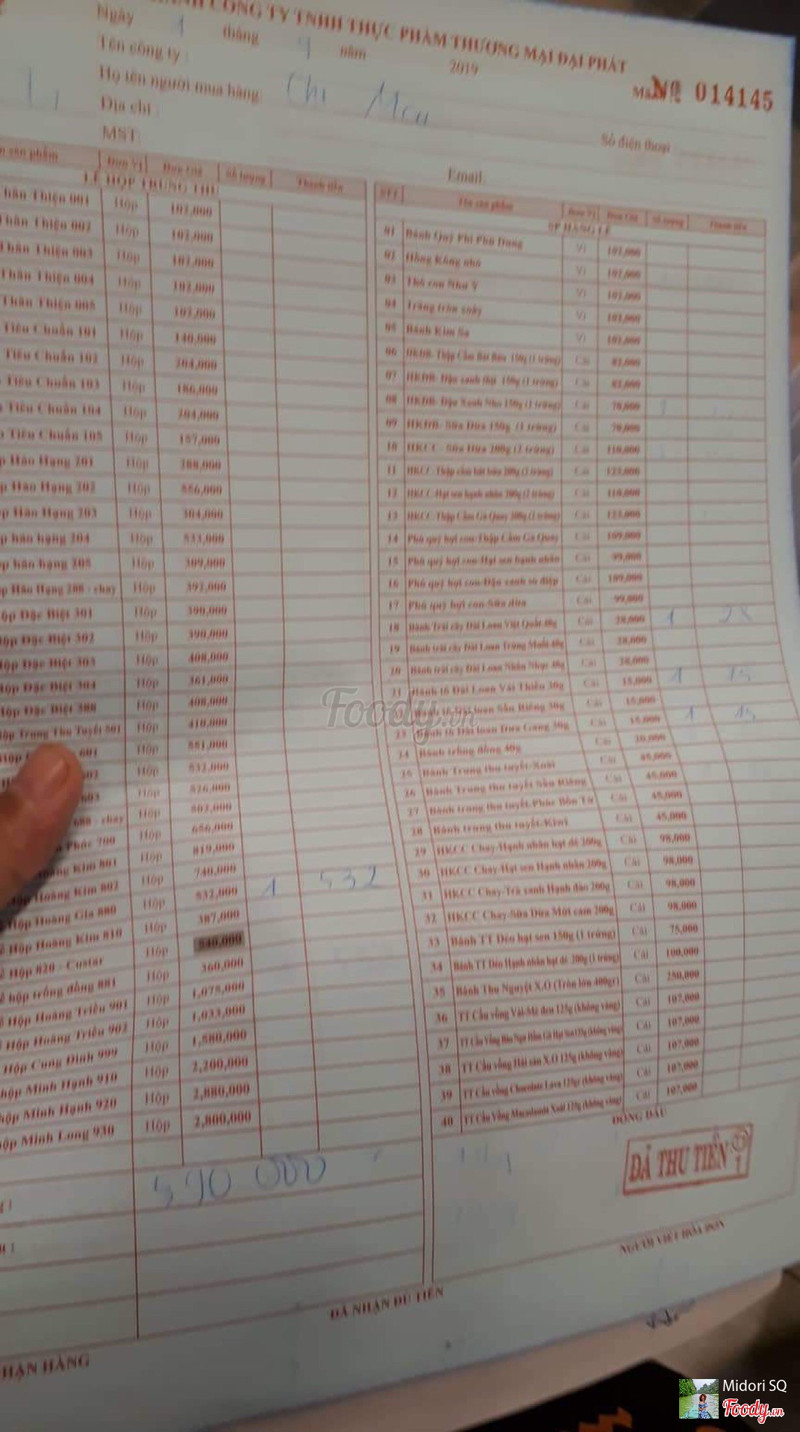 CÔNG TY TNHH THỰC PHẨM THƯƠNG MẠI ĐẠI PHÁT
Ngày 1 tháng 9 năm 2019
Tên công ty :
№ 014145
Họ tên người mua hàng: Chị
Địa chỉ :
Số điện thoại
MST:
Email:
sản phẩm Đơn Vị Đơn Giá Số lượng Thành tiền
HỘP TRUNG THU
Thân Thiện 001 Hộp 102,000
Thân Thiện 002 Hộp 102,000
Thân Thiện 003 Hộp 102,000
Thân Thiện 004 Hộp 102,000
Thân Thiện 005 Hộp 102,000
Tiêu Chuẩn 101 Hộp 140,000
Tiêu Chuẩn 102 Hộp 204,000
Tiêu Chuẩn 103 Hộp 186,000
Tiêu Chuẩn 104 Hộp 204,000
Tiêu Chuẩn 105 Hộp 157,000
Hảo Hạng 201 Hộp
Hảo Hạng 202 Hộp
Hảo Hạng 203 Hộp 304,000
hảo hạng 204 Hộp 333,000
hảo hạng 205 Hộp 309,000
Hảo Hạng 288 - chay Hộp 392,000
Hộp Đặc Biệt 301 Hộp 390,000
Hộp Đặc Biệt 302 Hộp 390,000
Hộp Đặc Biệt 303 Hộp 408,000
Hộp Đặc Biệt 304 Hộp 361,000
Hộp Đặc Biệt 388 Hộp 408,000
Hộp Trung Thu Tuyết 501 Hộp 410,000
601 Hộp 551,000
602 Hộp 532,000
603 Hộp 526,000
688 - chay Hộp 502,000
Phúc 700 Hộp 656,000
Hoàng Kim 801 Hộp 819,000
Hoàng Kim 802 Hộp 740,000
Hộp Hoàng Gia 880 Hộp 532,000 1 532
Hộp Hoàng Kim 810 Hộp 387,000
Hộp 820 - Custar Hộp 540,000
hộp trống đồng 881 Hộp 360,000
Hộp Hoàng Triều 901 Hộp 1,075,000
Hộp Hoàng Triều 902 Hộp 1,033,000
Hộp Cung Đình 999 Hộp 1,580,000
hộp Minh Hạnh 910 Hộp 2,200,000
hộp Minh Hạnh 920 Hộp 2,880,000
hộp Minh Long 930 Hộp 2,800,000
590 000
STT Tên sản phẩm Đơn Vị Đơn Giá Số lượng Thành tiền
SP HÀNG LẺ
01 Bánh Quý Phi Phù Dung Vỉ 102,000
02 Hồng Kông nhỏ Vỉ 102,000
03 Thỏ con Như Ý Vỉ 102,000
04 Trăng tròn xoáy Vỉ 102,000
05 Bánh Kim Sa Vỉ 102,000
06 HKĐB- Thập Cẩm Bát Bửu 150g (1 trứng) Cái 82,000
07 HKĐB- Đậu xanh 150g (1 trứng) Cái 82,000
08 HKĐB- Đậu Xanh Nho 150g (1 trứng) Cái 70,000
09 HKĐB- Sữa Dừa 150g (1 trứng) Cái 70,000
10 HKCC- Sữa Dừa 200g (2 trứng) Cái 110,000
11 HKCC- Thập cẩm bát bửu 200g (2 trứng) Cái 125,000
12 HKCC Hạt sen hạnh nhân 200g (2 trứng) Cái 110,000
13 HKCC- Thập Cẩm Gà Quay 200g (2 trứng) Cái 125,000
14 Phú quý hợi con-Thập Cẩm Gà Quay Cái 109,000
15 Phú quý hợi con-Hạt sen hạnh nhân Cái 99,000
16 Phú quý hợi con-Đậu xanh sò điệp Cái 109,000
17 Phú quý hợi con-Sữa dừa Cái 99,000
18 Bánh Trái cây Đài Loan Việt Quất 40g Cái 28,000 1 28
19 Bánh trái cây Đài Loan Trứng Muối 40g Cái 28,000
20 Bánh trái cây Đài Loan Nhân Nhục 40g Cái 28,000
21 Bánh tô Đài Loan Vải Thiều 30g Cái 15,000 1 15
Bánh tô Đài loan Sầu Riêng 30g Cái 15,000
23 Bánh tô Đài loan Dưa Gang 30g Cái 15,000 1 15
24 Bánh trống đồng 40g Cái 20,000
25 Bánh Trung thu tuyết-Xoài Cái 45,000
26 Bánh Trung thu tuyết Sầu Riêng Cái 45,000
27 Bánh trung thu tuyết-Phúc Bồn Tử Cái 45,000
28 Bánh trung thu tuyết-Kiwi Cái 45,000
29 HKCC Chay-Hạnh nhân hạt dẻ 200g Cái 98,000
30 HKCC Chay-Hạt sen Hạnh nhân 200g Cái 98,000
31 HKCC Chay-Trà xanh Hạnh đào 200g Cái 98,000
32 HKCC Chay-Sữa Dừa Mứt cam 200g Cái 98,000
33 Bánh TT Dẻo hạt sen 150g (1 trứng) Cái 75,000
34 Bánh TT Dẻo Hạnh nhân hạt dẻ 200g (1 trứng) Cái 100,000
35 Bánh Thu Nguyệt X.O (Tròn lớn 400gr) Cái 250,000
36 TT Cầu vồng Vải-Mè đen 125g (không vàng) Cái 107,000
37 TT Cầu Vồng (không vàng) Cái 107,000
38 TT Cầu vồng Hải sản X.O 125g (không vàng) Cái 107,000
39 TT Cầu vồng Chocolate Lava 125gr (không vàng) Cái 107,000
40 TT Cầu Vồng Macadamia Xoài 125g (không vàng) Cái 107,000
ĐÓNG DẤU
ĐÃ THU TIỀN
NGƯỜI VIẾT HÓA ĐƠN
ĐÃ NHẬN ĐỦ TIỀN
NHẬN HÀNG
Foody.vn
Midori SQ
Foody.vn